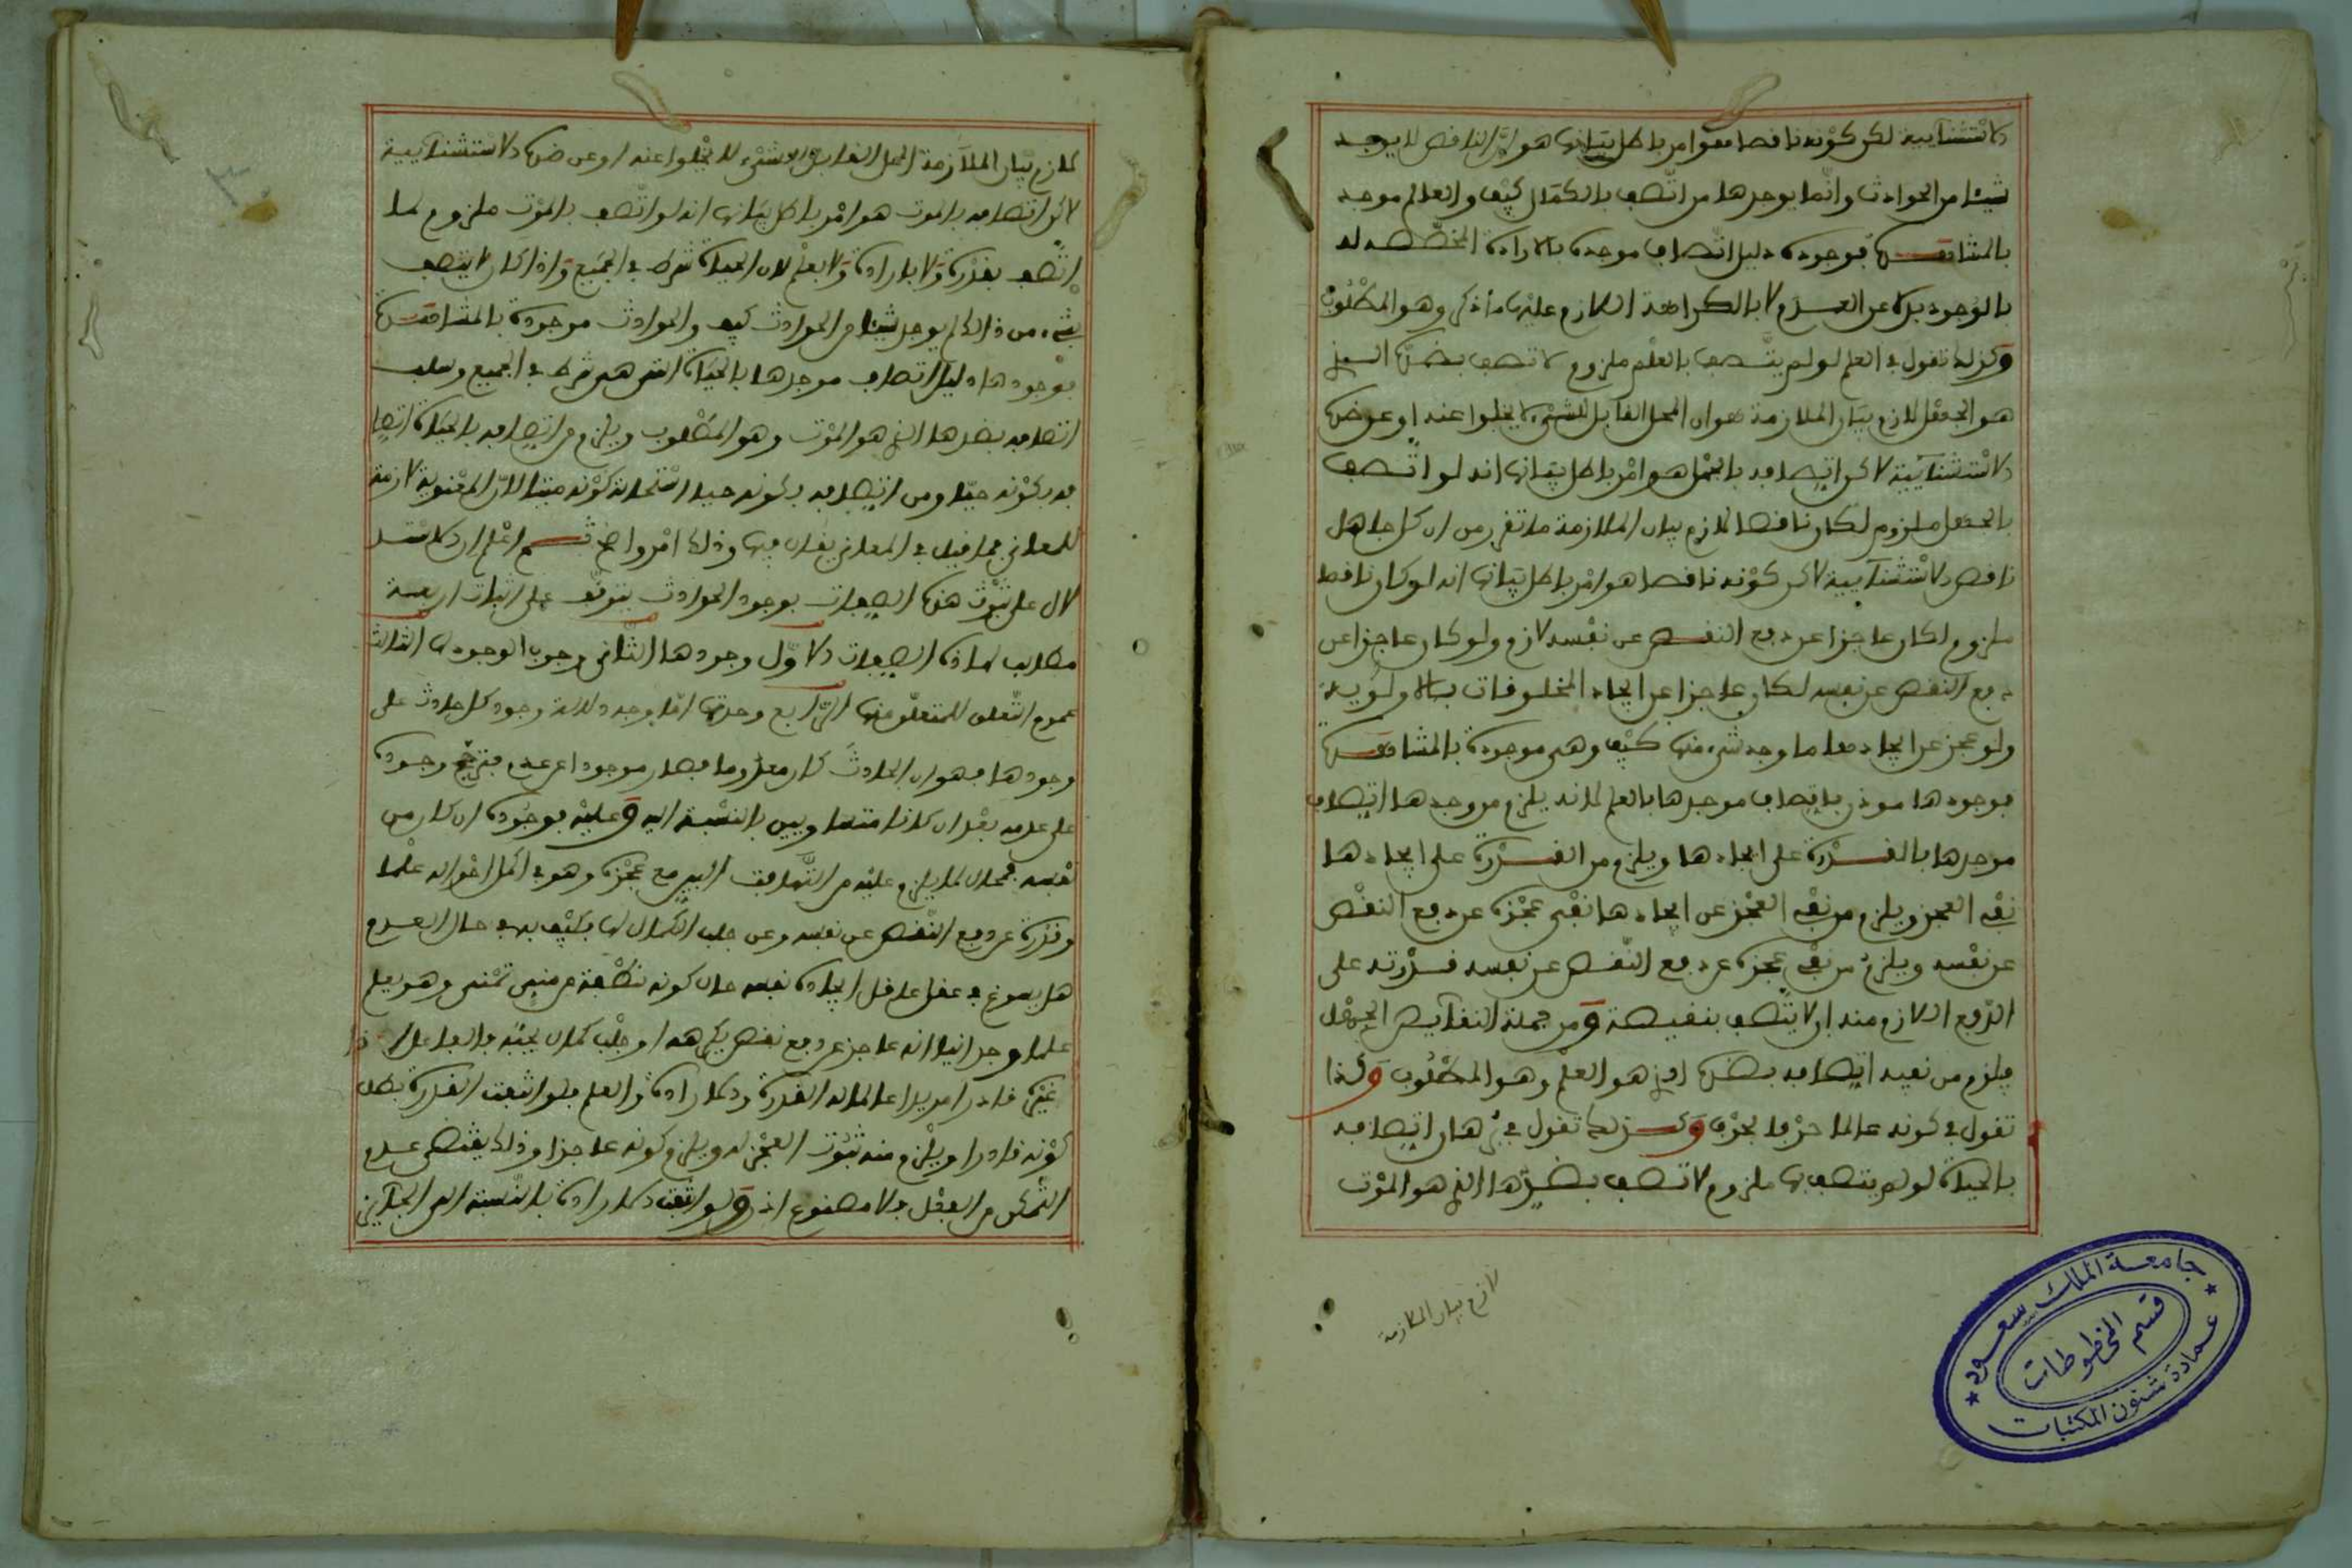 الاستثنائية لكن كونه ناقصا فهو أمر باطل بيانها هو أن الناقص لا يوجد
شيئا من الحوادث وإنما يوجدها من اتصف بالكمال كيف والعالم موجد
بالمشاهدة فوجوده دليل اتصاف موجده بالارادة المخصصة له
بالوجود بدلا عن العدم لا بالكراهة اللازم عليها ما ذكر وهو المطلوب
وكذلك تقول في العلم لو لم يتصف بالعلم ملزوم لاتصف بضده الذي
هو الجهل لازم بيان الملازمة هو ان المحل القابل للشيء لا يخلوا عنه او عن ضده
الاستثنائية لاكن اتصافه بالجهل هو امر باطل بيانها انه لو اتصف
بالجهل ملزوم لكان ناقصا لازم بيان الملازمة ما تقرر من ان كل جاهل
ناقص الاستثنائية لاكن كونه ناقصا هو امر باطل بيانها انه لو كان ناقصا
ملزوم لكان عاجزا عن دفع النقص عن نفسه لازم ولو كان عاجزا عن
دفع النقص عن نفسه لكان عاجزا عن ايجاد المخلوفات بالاولوية
ولو عجز عن ايجادها ما وجد شيء منها كيف وهي موجودة بالمشاهدة
فوجودها موذن باتصاف موجدها بالعلم لانه يلزم من وجدها اتصاف
موجدها بالقدرة على ايجادها ويلزم من القدرة على ايجادها
نفي العجز ويلزم من نفي العجز عن ايجادها نفي عجزه عن دفع النقص
عن نفسه ويلزم من نفي عجزه عن دفع النقص عن نفسه قدرته على
الدفع اللازم منه ان لا يتصف بنقيصة ومن جملة النقايص الجهل
فيلزم من نفيه اتصافه بضده الذي هو العلم وهو المطلوب وكذا
تقول في كونه عالما حرفا بحرف وكذلك تقول في برهان اتصافه
بالحياة لو لم يتصف بها ملزوم لاتصف بضدها الذي هو الموت
لازم بيان الملازمة
جامعة الملك سعود
قسم المخطوطات
عمادة شئون المكتبات
لازم بيان الملازمة المحل القابل للشيء لا يخلوا عنه او عن ضده الاستثنائية
لاكن اتصافه بالموت هو امر باطل بيانها انه لو اتصف بالموت ملزوم لما
اتصف بقدرة ولا بارادة ولا بعلم لان الحياة شرط في الجميع واذا كان لا يتصف
بشيء من ذالك لم يوجد شيئا من الحوادث كيف والحوادث موجودة بالمشاهدة
فوجودها دليل اتصاف موجدها بالحياة التي هي شرط في الجميع وسلب
اتصافه بضدها الذي هو الموت وهو المطلوب ويلزم من اتصافه بالحياة اتصا
فه بكونه حيا ومن اتصافه بكونه حيا استحالة كونه ميتا لان المعنوية لازمة
للمعاني فما قيل في المعاني يقال فيها وذلك امر واضح ثم اعلم ان الاستد
لال على ثبوت هذه الصفات بوجود الحوادث يتوقف على اثبات اربعة
مطالب لهاذه الصفات الاول وجودها الثاني وجوب الوجود لها الثالث
عموم التعلق للمتعلق منها الرابع وحدتها اما وجه دلالة وجود كل حادث على
وجودها فهو ان الحادث كان معدوما فصار موجودا عن عدم فترجح وجوده
على عدمه بعد ان كانا متساويين بالنسبة اليه وعليه فوجوده ان كان من
نفسه فمحال لما يلزم عليه من التهافت البين مع عجزه وهو في اكمل احواله علما
وقدرة عن دفع النقص عن نفسه وعن جلب الكمال لها فكيف به في حال العدم
هل يسوغ في عقل عاقل ايجاده نفسه حال كونه نطفة من مني تمنى وهو يعلم
علما وجدانيا انه عاجز عن دفع نقص يكرهه او جلب كمال يحبه فالفاعل اذا
غيره قادرا مريدا عالما له القدرة والارادة والعلم فلو انتفت القدرة بطل
كونه قادرا ويلزم منه ثبوت العجز له ويلزم كونه عاجزا وذلك يقتضي عدم
التمكن من الفعل فلا مصنوع اذا ولو انتفت الارادة بالنسبة الى الجايز